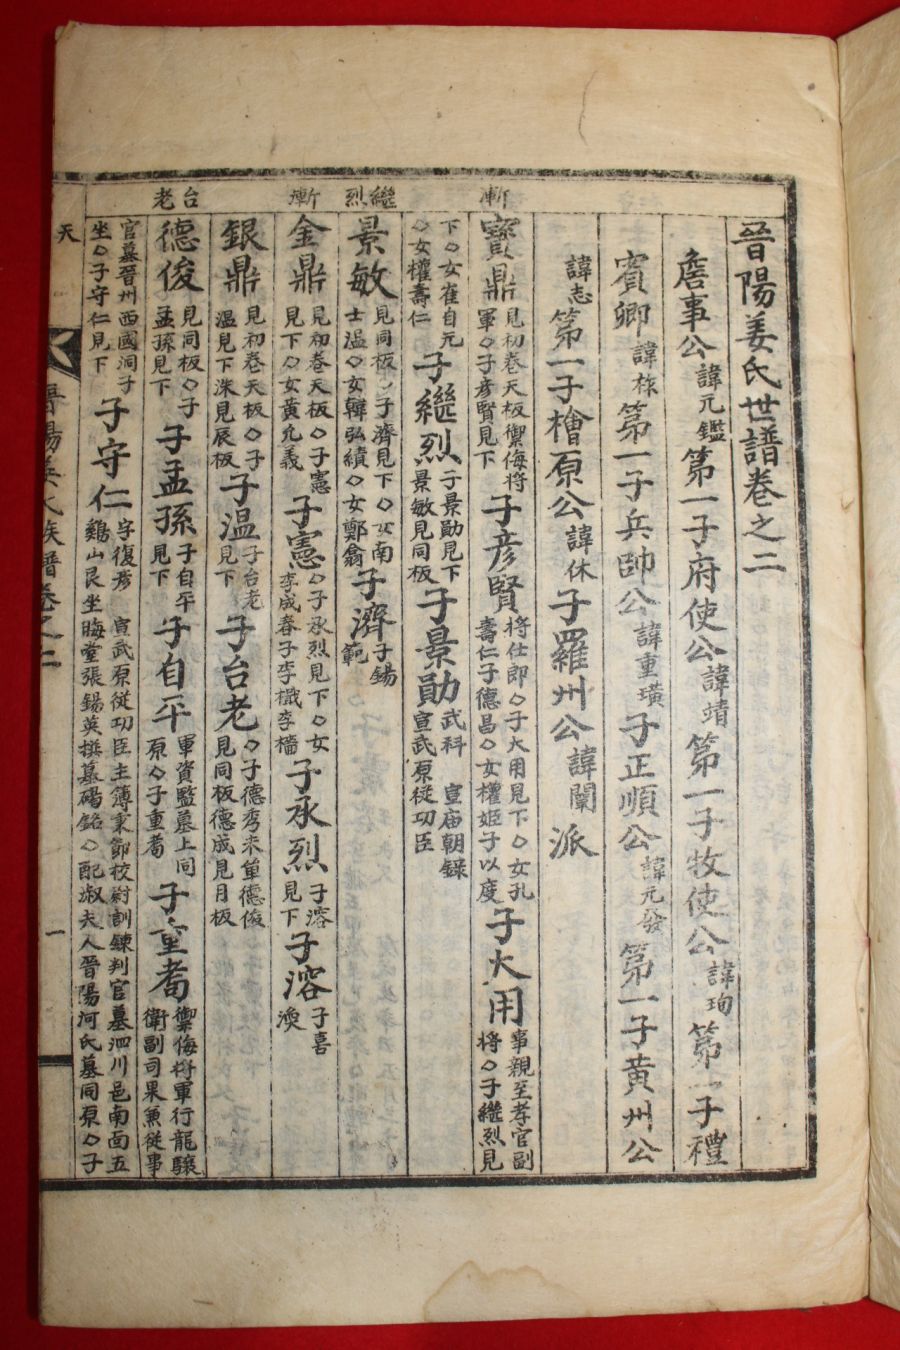 晉陽姜氏世譜卷之二
詹事公諱元鑑第一子府使公諱靖第一子牧使公諱珣第一子禮
賓卿諱栐第一子兵帥公諱重璜子正順公諱元發第一子黄州公
諱志第一子檜原公諱休子羅州公諱闡派
漸
寶鼎見初卷天板禦侮將軍○子彦賢見下子彦賢將仕郎○子大用見下○女孔壽仁子德昌○女權姬子以度子大用事親至孝官副將○子繼烈見
下○女崔自元○女權壽仁子繼烈子景勛見下景敏見同板子景勛武科 宣庙朝錄宣武原從功臣
繼烈
景敏見同板○子濟見下○女南士温○女韓弘績○女鄭翕子濟子鍚範
漸
金鼎見初卷天板○子憲見下○女黄允義子憲○子承烈見下○女李成春子李檝李檣子承烈子溶見下子溶子喜渙
銀鼎見初卷天板○子温見下洙見辰板子温子台老見下子台老○子德秀未單德俊見同板德成見月板
台老
德俊見同板○子孟孫見下子孟孫子自平見下子自平軍資監墓上同原○子重耇子重耇禦侮將軍行龍驤衛副司果兼從事
官墓晉州西國洞子坐○子守仁見下子守仁字復彦 宣武原從功臣主簿秉節校尉訓鍊判官墓泗川邑南面五鷄山艮坐晦堂張錫英撰墓碣銘○配淑夫人晉陽河氏墓同原○子
天
晉陽姜氏族譜卷之二
一